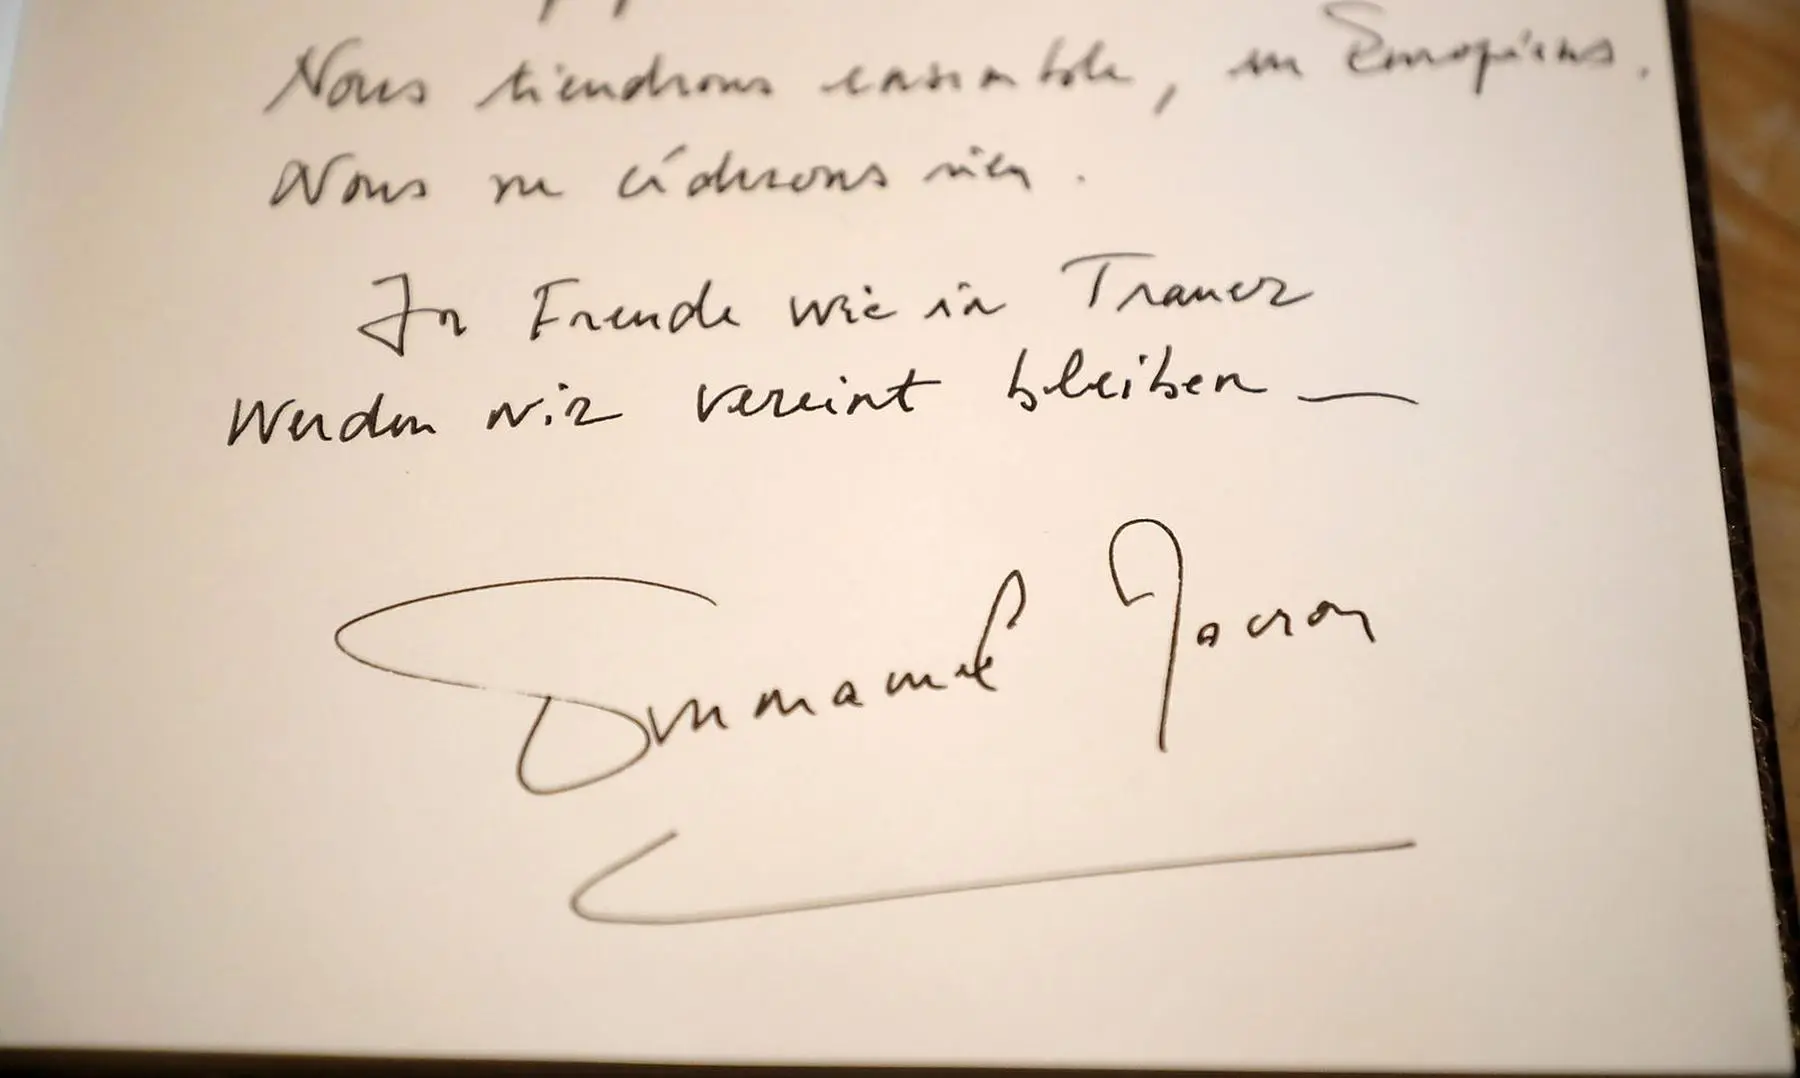 Nous tiendrons ensemble, en Européens.
Nous ne céderons rien.
In Freude wie in Trauer
werden wir vereint bleiben —
Emmanuel Macron